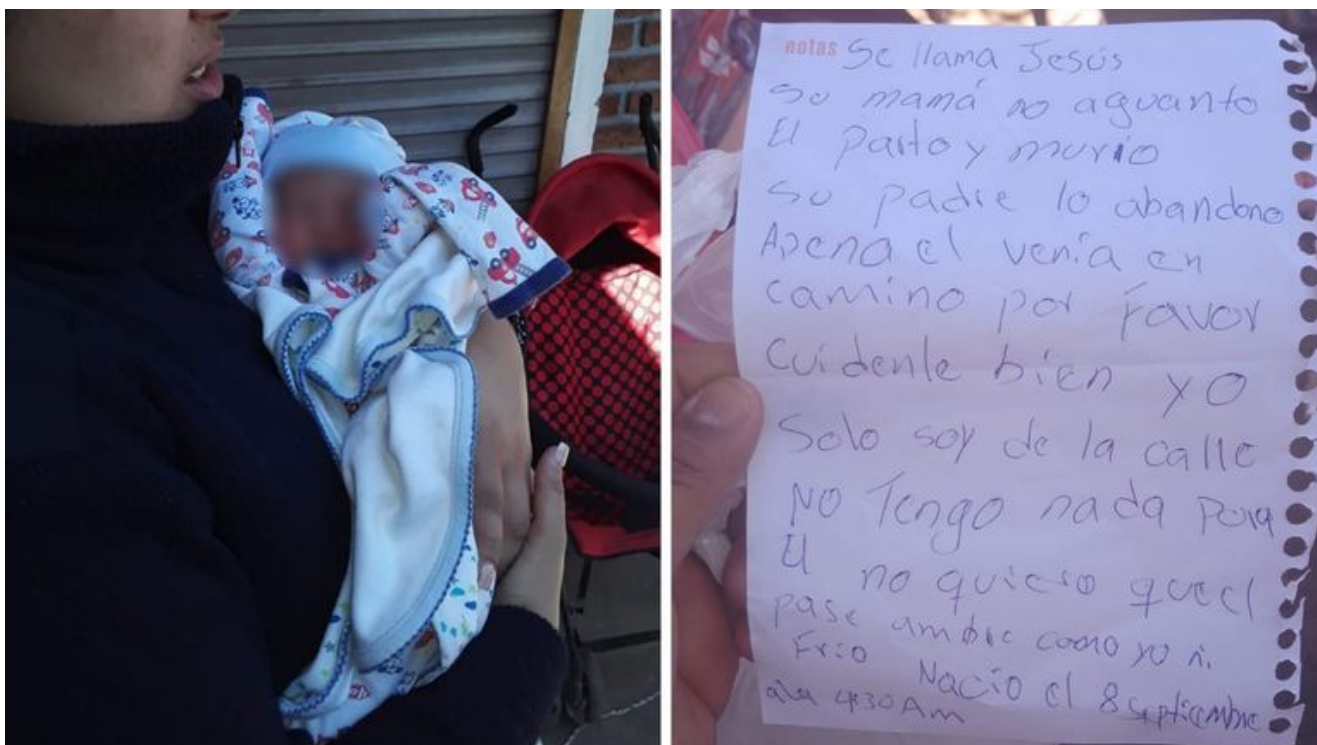 notas Se llama Jesús
su mamá no aguanto
El parto y murio
su padre lo abandono
Apena el venía en
camino por favor
Cuidenle bien yo
Solo soy de la calle
NO Tengo nada para
El no quiero que el
pase ambre como yo ni
Frio Nacio el 8 septiembre
a la 4:30 Am